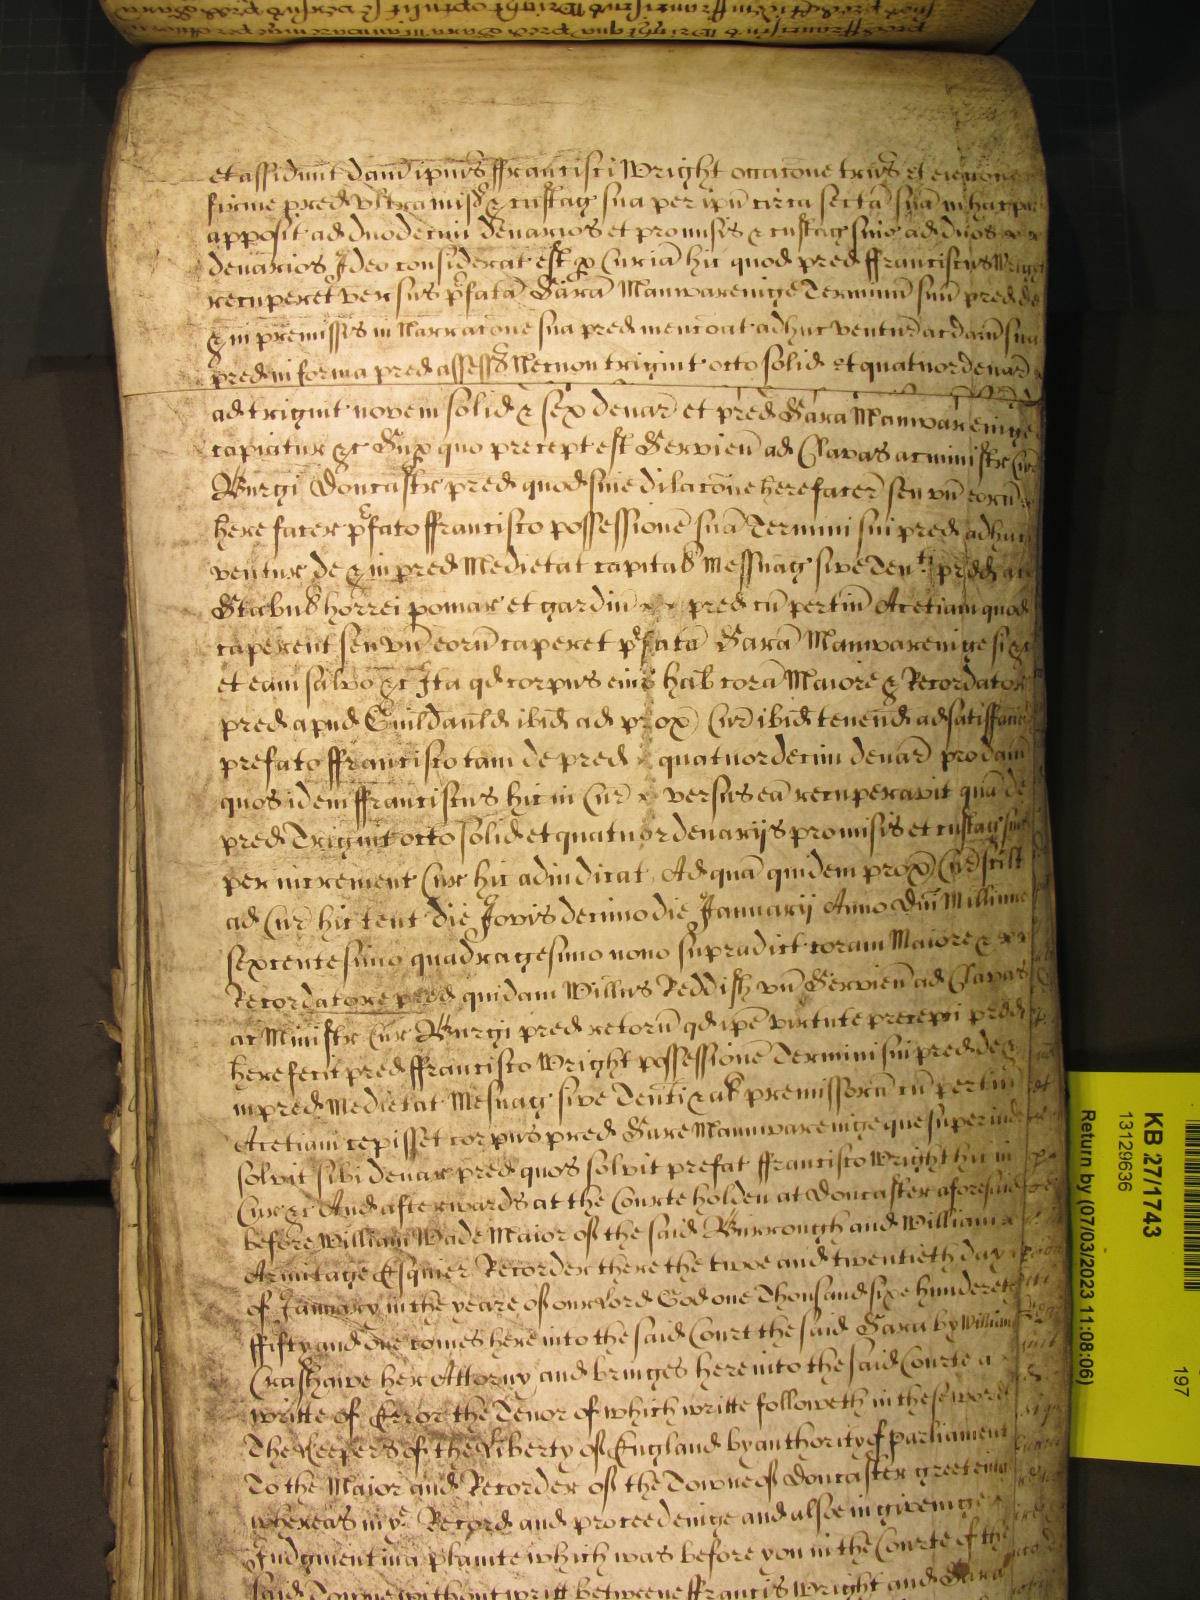 et assidunt damn ipius ffrancisci Wright occacone trns et
firme pred ultra mis & custag sua per ipm circa secta sua in hac
apposit ad duodecim denarios et pro misis & custag suis ad duos
denarios Ideo considerat est p Curia hic quod pred ffranciscus Wright
recuperet versus pfata Sara Manwareinge Terminu suu pred de
& in premissis in Narracone sua pred mencoat adhuc ventur ac dam sua
pred in forma pred assess Necnon trigint octo solid et quatuor denar
ad trigint novem solid & sex denar et pred Sara Manwareinge
capiatur &c Sup quo precept est Servien ad Clavas ac ministr Cur
Burgi Doncastr pred quod sine dilacone here facer seu un eoru
here facer pfato ffrancisco possessione sua Termini sui pred adhuc
ventur de & in pred Medietat capital Messuag sive Ten pred ac
Stabul horrei pomar et gardin pred cu pertin Acetiam quod
caperent seu un eoru caperet pfata Sara Manwareinge si &c
et eam salvo &c Ita qd corpus eius hab cora Maiore & Recordator
pred apud Guildauld ibid ad prox Cur ibid tenend ad satisffaci
prefato ffrancisco tam de pred quatuordecim denar pro dam
quos idem ffranciscus hic in Cur versus ea recuperavit qua de
pred Trigint octo solid et quatuor denarijs pro misis et custag suis
per increment Cur hic adiudicat Ad qua quidem prox Cur scilt
ad Cur hic tent die Jovis decimo die Januarij Anno Dni Millimo
sexcentesimo quadragesimo nono supradict coram Maiore &
Recordatore pred quidam Willus Reddish un Servien ad Clavas
ac Ministr Cur Burgi pred retorn qd ipe virtute precepti pred
here fecit pred ffrancisco Wright possessione Termini sui pred de &
in pred Medietat Mesuag sive Tenti & al premissoru cu pertin
Acetiam cepisset corpus pred Sare Mannwareinge que superinde
solvit sibi denar pred quos solvit prefat ffrancisco Wright hic in
Cur &c And afterwards at the Courte holden at Doncaster aforesaid
before William Wade Maior of the said Burrough and William
Armitage Esquier Recorder there the twoe and twentieth day
of January in the yeare of our Lord God one Thousand sixe hundered
ffifty and one comes here into the said Court the said Sara by William
Crashawe her Attorny and bringes here into the said Courte a
writte of Error the Tenor of which writte followeth in these word
The Keepers of the Liberty of England by authority of parliament
To the Maior and Recorder of the Towne of Doncaster greeteing
whereas in ye Record and proceedeinge and alsoe in giveinge
Judgment in a plainte which was before you in the Courte of the
said Towne without writt betweene ffrancis Wright and Sara
KB 27/1743
13129636
Return by (07/03/2023 11:08:06)
197